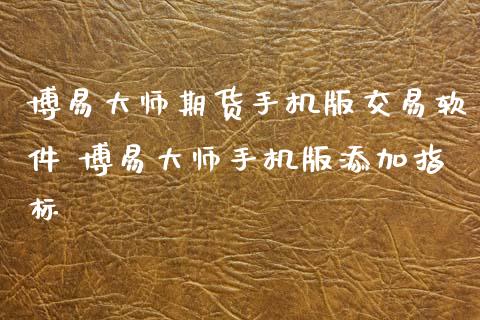 博易大师期货手机版交易软
件 博易大师手机版添加指
标